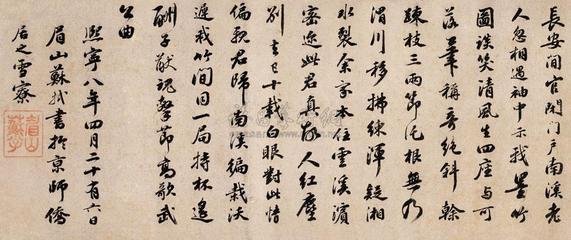 長安閒官閉門戶南溪老
人忽相過袖中示我墨竹
圖談笑清風生四座与可
落筆稱奇絕斜榦
疎枝三兩節託根無乃
渭川移拂練渾疑湘
水裂余家本住雲溪濱
密迩此君真故人紅塵
別去已十載白眼對此情
偏親君歸南溪徧栽
竹間同一局持杯遙
酬子猷魂擊節高歌
公曲
熙寧八年四月二十有六日
眉山蘇軾書於京師僑
居之雪寮
眉山蘇軾